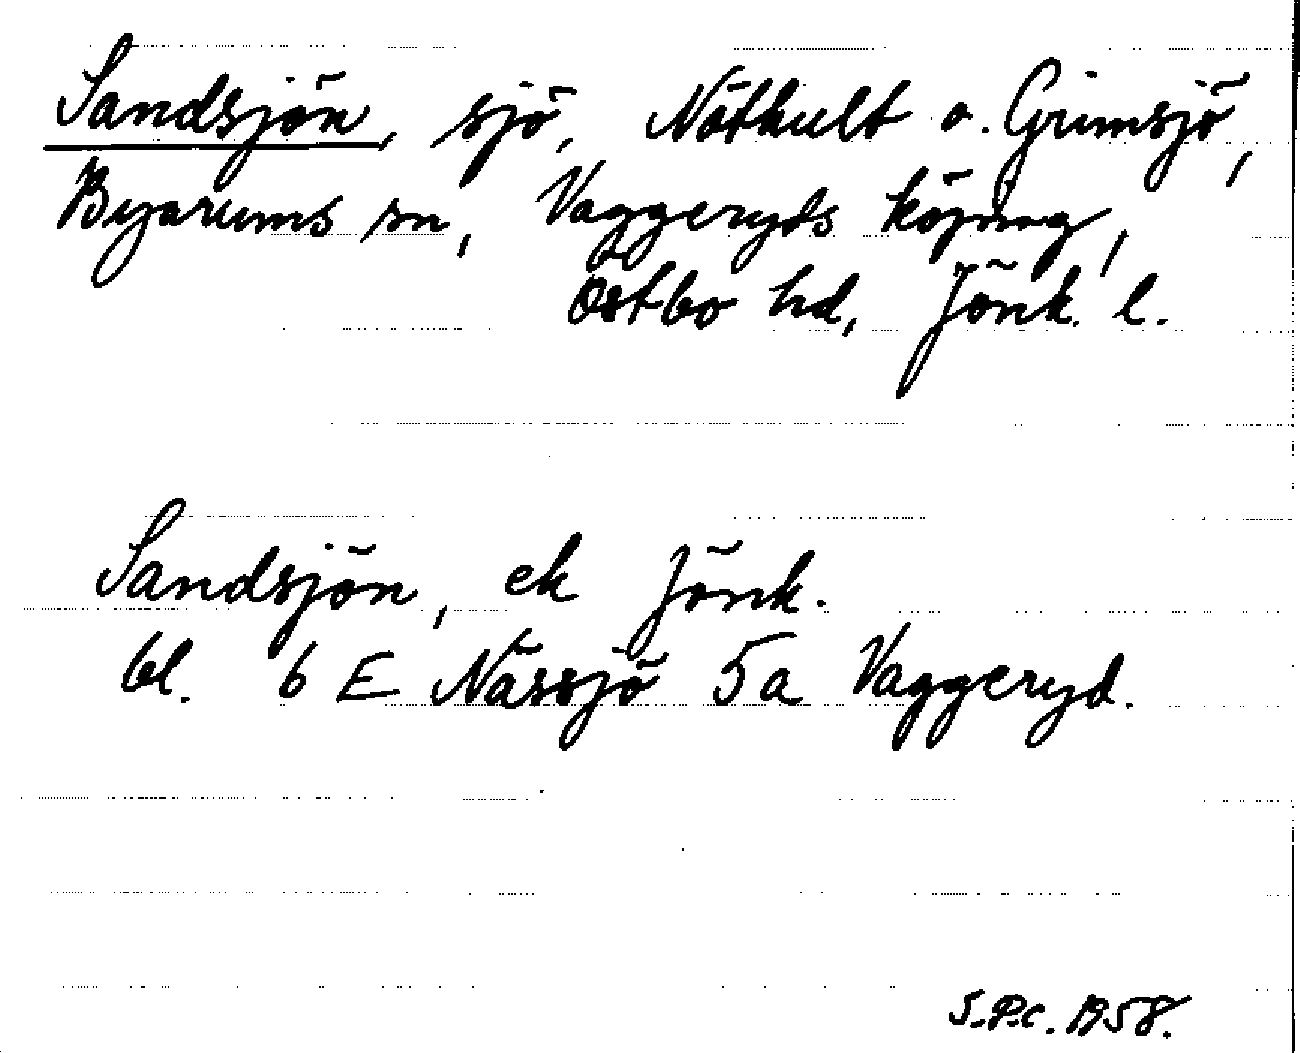 Sandsjön, sjö, Nöthult o. Grimsjö,
Byarums sn, Vaggeryds köping,
Östbo hd, Jönk. l.
Sandsjön, ek Jönk.
bl. 6 E Nässjö 5a Vaggeryd.
S.P.C. 1958.